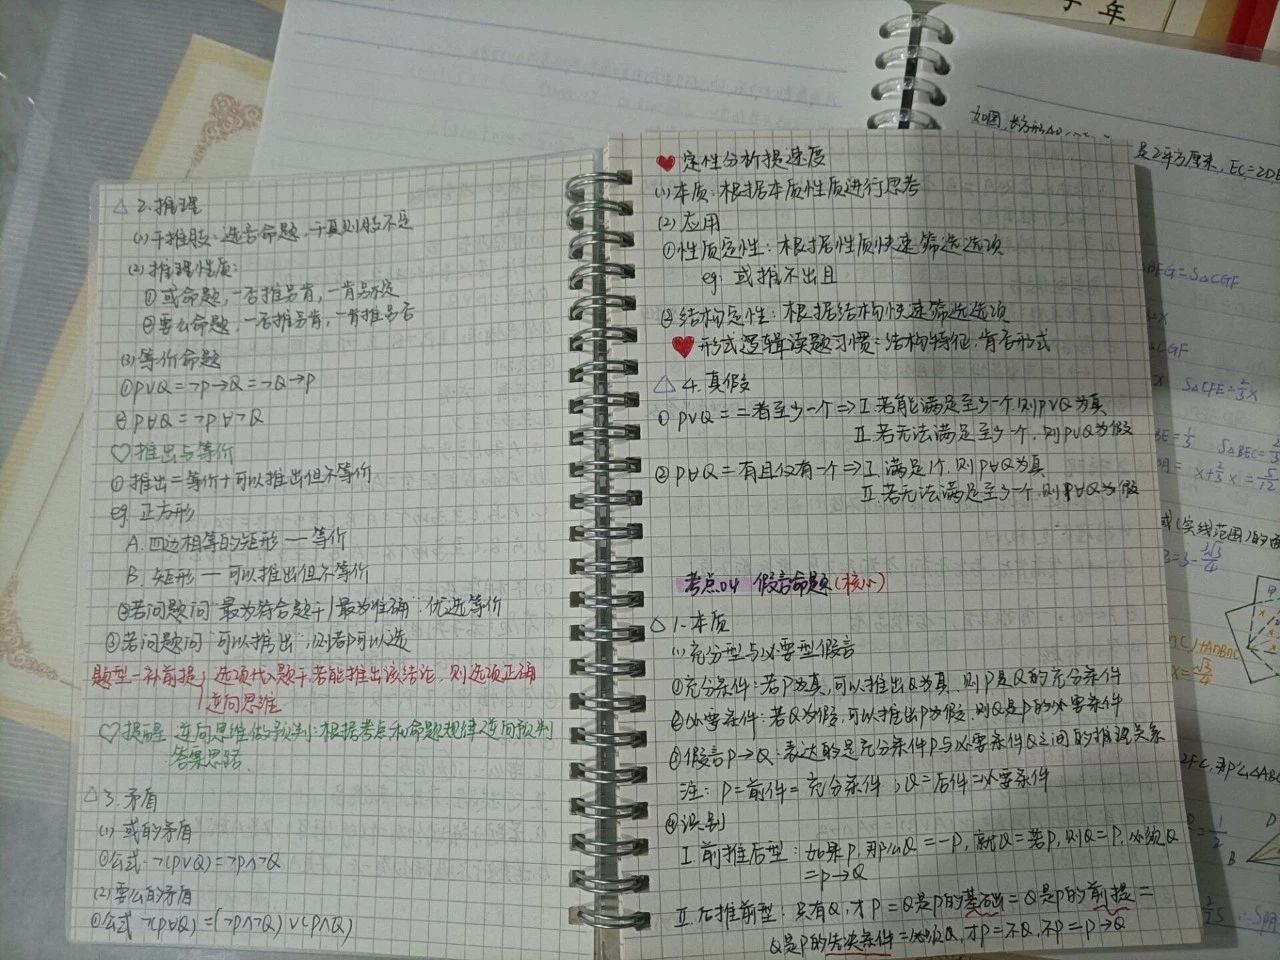 △ 2.推理
(1)干推肢:选言命题,干真则肢不定
(2)推理性质:
①或命题,一否推另肯,一肯另不定
②要么命题,一否推另肯,一肯推另否
(3)等价命题
①P∨Q=¬P→Q=¬Q→P
②P∀Q=¬P∀¬Q
♡推出与等价
①推出=等价+可以推出但不等价
eg.正方形
A.四边相等的矩形—等价
B.矩形—可以推出但不等价
②若问题问"最为符合题干/最为准确",优选等价
③若问题问"可以推出",则都可以选
题型-补前提,选项代入题干,若能推出该结论,则选项正确
逆向思维
♡提醒 逆向思维做预判:根据考点和命题规律逆向预判
答案思路.
△3.矛盾
(1)或的矛盾
①公式:¬(P∨Q)=¬P∧¬Q
(2)要么的矛盾
①公式 ¬(P∀Q)=(¬P∧¬Q)∨(P∧Q)
♥定性分析提速度
(1)本质:根据本质性质进行思考
(2)应用
①性质定性:根据性质快速筛选选项
eg:或推不出且
②结构定性:根据结构快速筛选选项
♥形式逻辑读题习惯:结构特征,肯否形式
△4.真假
①P∨Q=二者至少一个=>Ⅰ.若能满足至少一个,则P∨Q为真
Ⅱ.若无法满足至少一个,则P∨Q为假
②P∀Q=有且仅有一个=>Ⅰ.满足1个,则P∀Q为真
Ⅱ.若无法满足至少一个,则P∀Q为假
考点04 假言命题(核心)
△1.本质
(1)充分型与必要型假言
①充分条件:若P为真,可以推出Q为真,则P是Q的充分条件
②必要条件:若Q为假,可以推出P为假,则Q是P的必要条件
③假言P→Q:表达的是充分条件P与必要条件Q之间的推理关系
注:P=前件=充分条件;Q=后件=必要条件
④识别
Ⅰ.前推后型:如果P,那么Q=一P,就Q=若P,则Q=P,必须Q
=P→Q
Ⅱ.后推前型:只有Q,才P=Q是P的基础=Q是P的前提=
Q是P的先决条件=必须Q,才P=不Q,不P=P→Q
学年
如图,长方形
是2平方厘米,EC=2DE
BFG=S△CGF
CGF
S△CFE=2/3x
S△BEC=
(实线范围)的